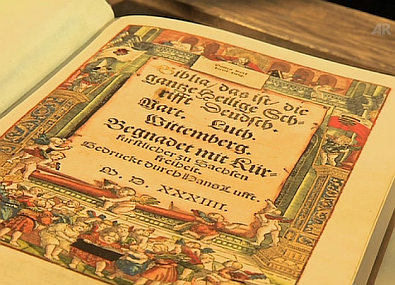 Biblia / das ist / die
gantze Heilige Sch-
rifft Deudsch.
Mart. Luth.
Wittemberg.
Begnadet mit Kür-
fürstlicher zu Sachsen
freiheit.
Gedruckt durch Hans Lufft.
M. D. XXXIIII.
AR